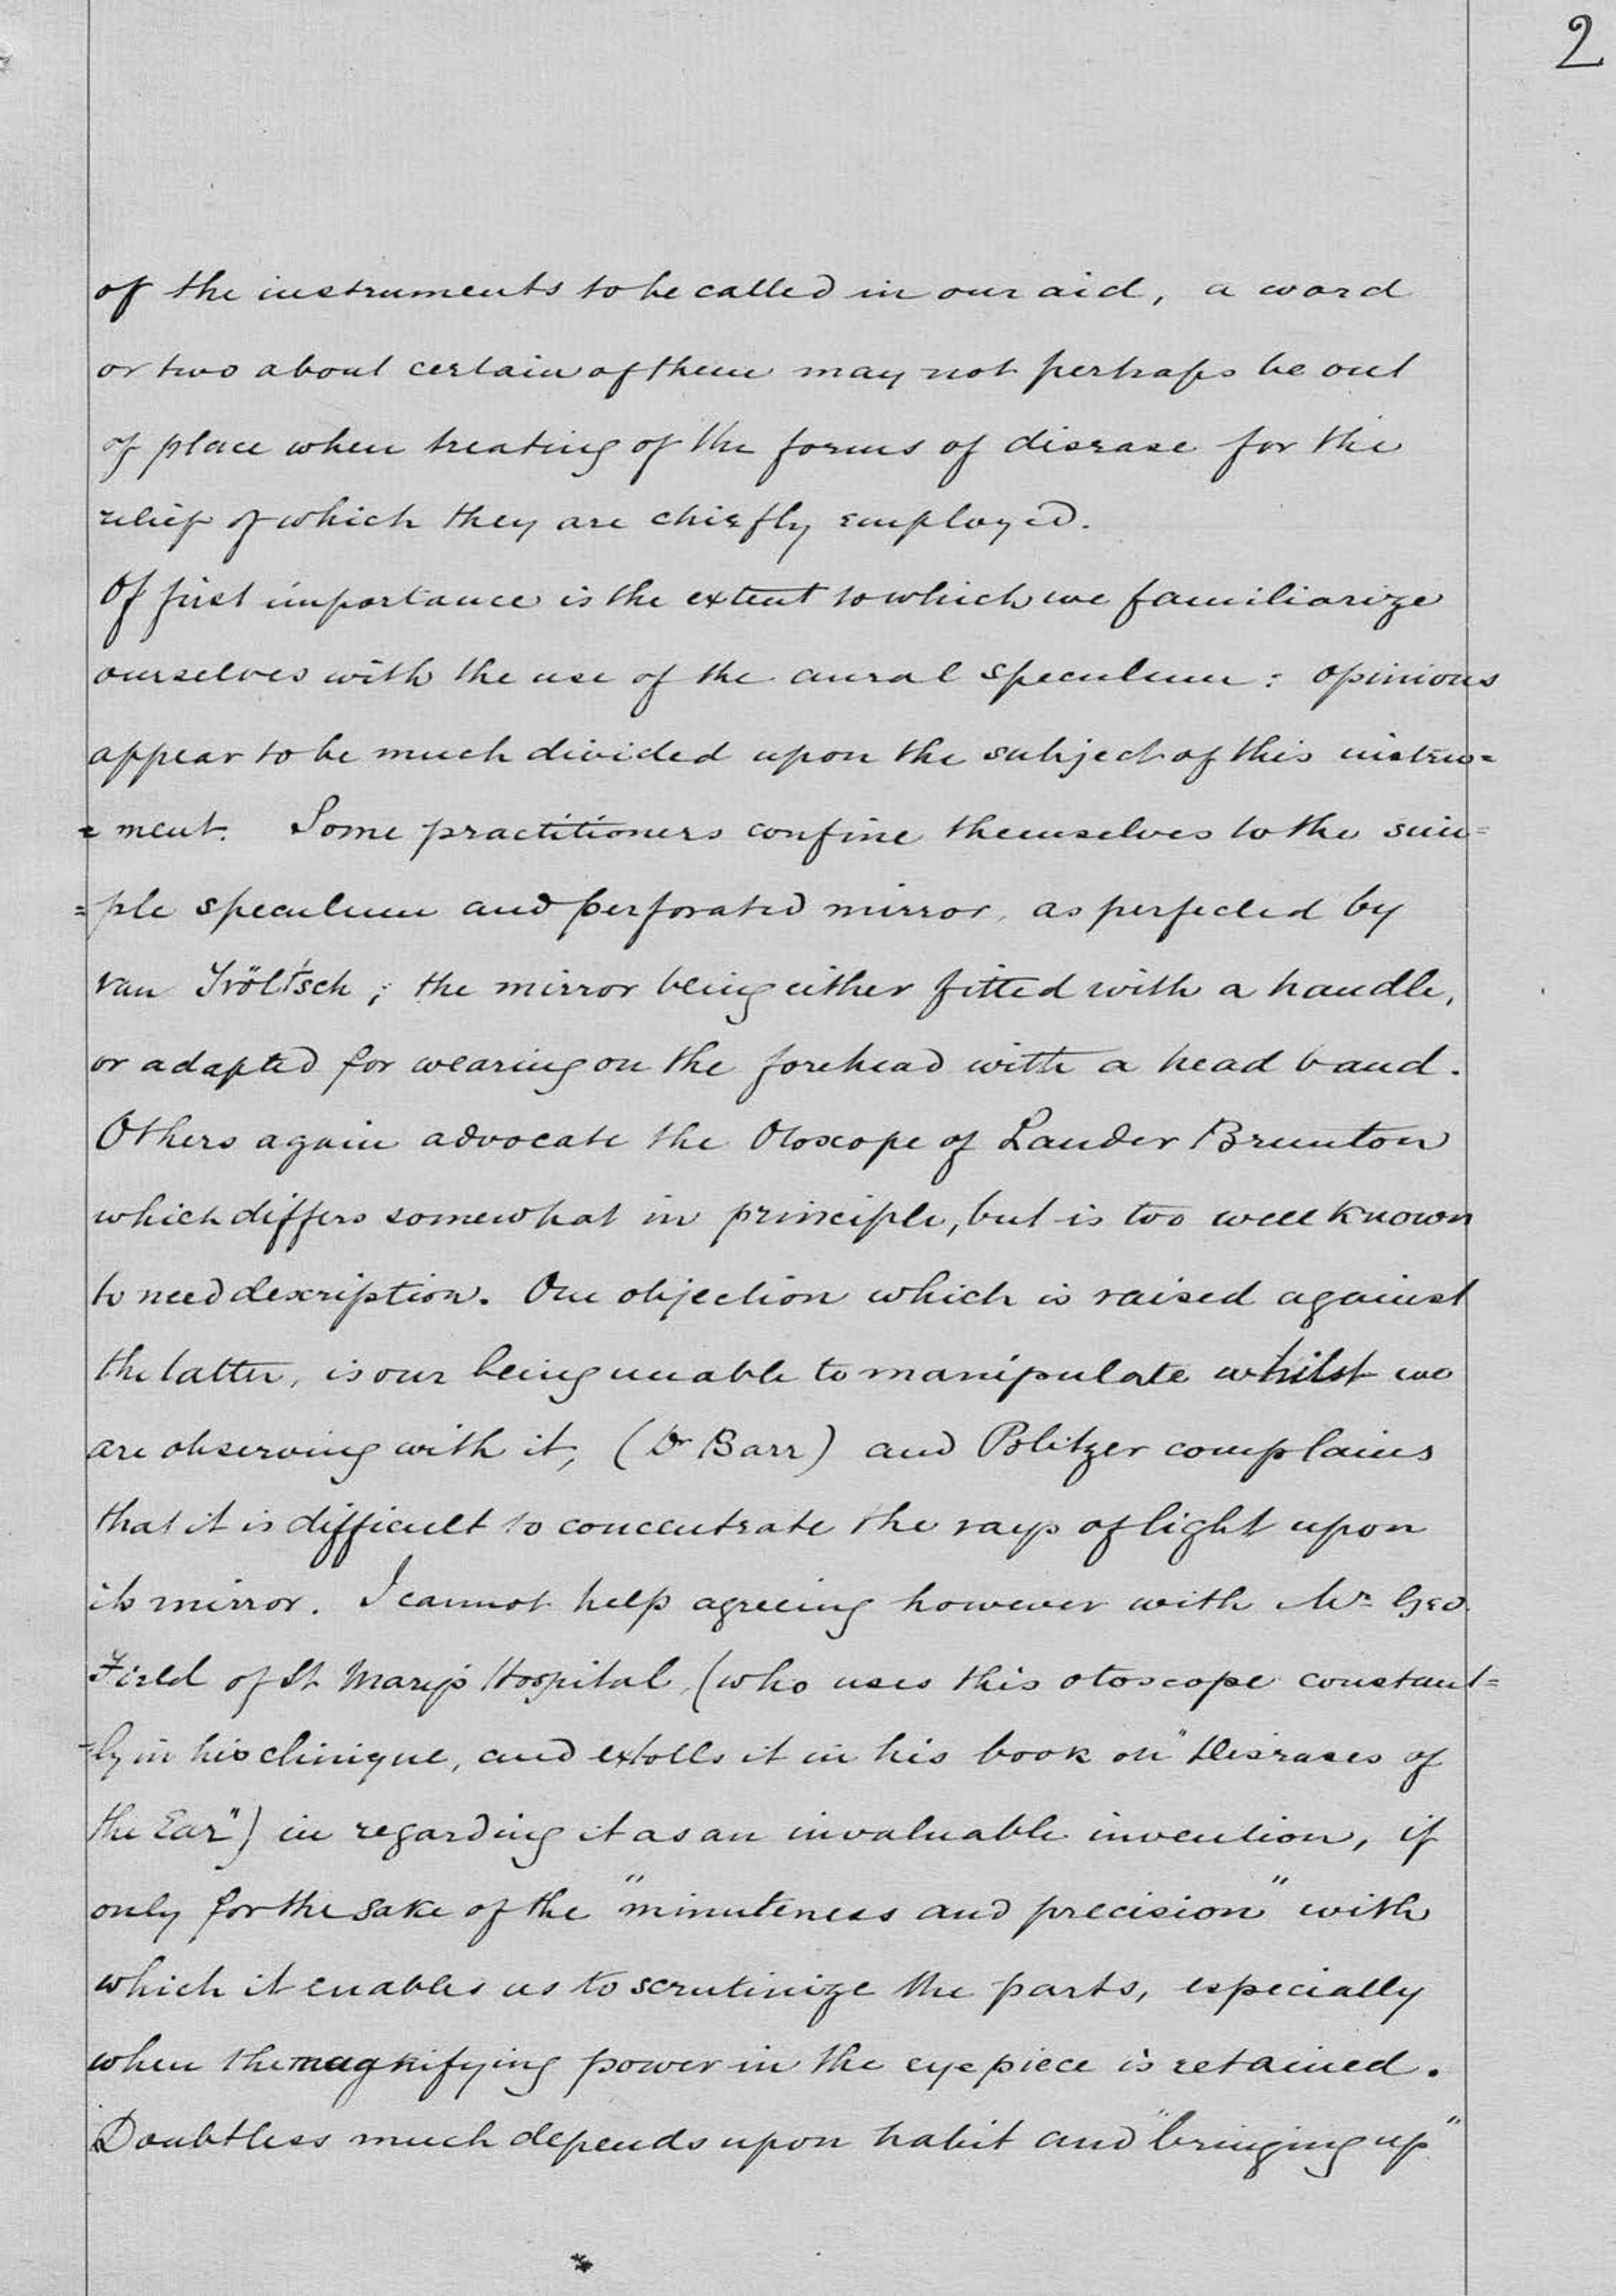 2
of the instruments to be called in our aid, a word
or two about certain of them may not perhaps be out
of place when treating of the forms of disease for the
relief of which they are chiefly employed.
Of first importance is the extent to which we familiarize
ourselves with the use of the aural speculum: opinions
appear to be much divided upon the subject of this instru=
=ment. Some practitioners confine themselves to the sim=
=ple speculum and perforated mirror, as perfected by
van Tröltsch; the mirror being either fitted with a handle,
or adapted for wearing on the forehead with a head band.
Others again advocate the Otoscope of Lauder Brunton
which differs somewhat in principle, but is too well known
to need description. One objection which is raised against
the latter, is our being unable to manipulate whilst we
are observing with it, (Dr Barr) and Politzer complains
that it is difficult to concentrate the rays of light upon
its mirror. I cannot help agreeing however with Mr Geo.
Field of St Mary's Hospital, (who uses this otoscope constant=
=ly in his clinique, and extolls it in his book on "Diseases of
the Ear") in regarding it as an invaluable invention, if
only for the sake of the "minuteness and precision" with
which it enables us to scrutinize the parts, especially
when the magnifying power in the eye piece is retained.
Doubtless much depends upon habit and "bringing up"